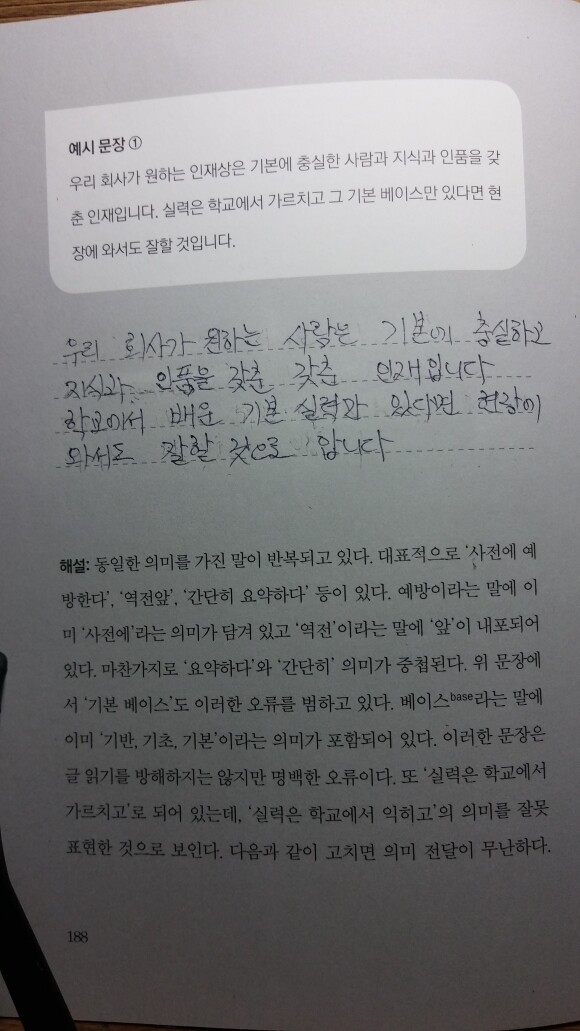 예시 문장 ①
우리 회사가 원하는 인재상은 기본에 충실한 사람과 지식과 인품을 갖
춘 인재입니다. 실력은 학교에서 가르치고 그 기본 베이스만 있다면 현
장에 와서도 잘할 것입니다.
우리 회사가 원하는 사람은 기본에 충실하고
지식과 인품을 갖춘 갖춘 인재입니다
학교에서 배운 기본 실력만 있다면 현장에
와서도 잘할 것으로 입니다
해설: 동일한 의미를 가진 말이 반복되고 있다. 대표적으로 ‘사전에 예
방한다’, ‘역전앞’, ‘간단히 요약하다’ 등이 있다. 예방이라는 말에 이
미 ‘사전에’라는 의미가 담겨 있고 ‘역전’이라는 말에 ‘앞’이 내포되어
있다. 마찬가지로 ‘요약하다’와 ‘간단히’ 의미가 중첩된다. 위 문장에
서 ‘기본 베이스’도 이러한 오류를 범하고 있다. 베이스base라는 말에
이미 ‘기반, 기초, 기본’이라는 의미가 포함되어 있다. 이러한 문장은
글 읽기를 방해하지는 않지만 명백한 오류이다. 또 ‘실력은 학교에서
가르치고’로 되어 있는데, ‘실력은 학교에서 익히고’의 의미를 잘못
표현한 것으로 보인다. 다음과 같이 고치면 의미 전달이 무난하다.
188